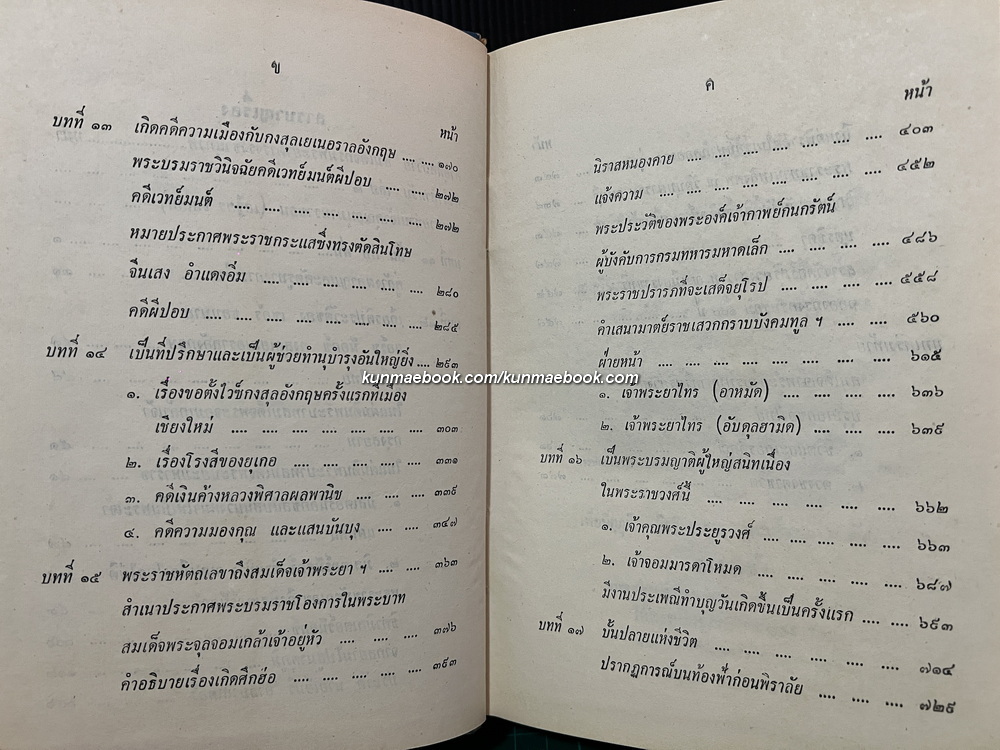 ข
หน้า
บทที่ ๑๓ เกิดคดีความเมืองกับกงสุลเยเนอราลอังกฤษ .... .... ๑๗๐
พระบรมราชวินิจฉัยคดีเวทย์มนต์ผีปอบ .... .... ๒๗๒
คดีเวทย์มนต์ .... .... .... .... .... .... ๒๗๒
หมายประกาศพระราชกระแสซึ่งทรงตัดสินโทษ
จีนเสง อำแดงอิ่ม .... .... .... .... .... ๒๘๐
คดีผีปอบ .... .... .... .... .... .... .... ๒๘๕
บทที่ ๑๔ เป็นที่ปรึกษาและเป็นผู้ช่วยทำนุบำรุงอันใหญ่ยิ่ง .... ๒๙๓
๑. เรื่องขอตั้งไวซ์กงสุลอังกฤษครั้งแรกที่เมือง
เชียงใหม่ .... .... .... .... .... .... ๓๐๓
๒. เรื่องโรงสีของยุเกอ .... .... .... .... ๓๓๑
๓. คดีเงินค้างหลวงพิศาลผลพานิช .... .... .... ๓๓๙
๔. คดีความมองคุณ และแสนบันบุง .... .... ๓๔๗
บทที่ ๑๕ พระราชหัตถเลขาถึงสมเด็จเจ้าพระยา ฯ .... .... ๓๖๓
สำเนาประกาศพระบรมราชโองการในพระบาท
สมเด็จพระจุลจอมเกล้าเจ้าอยู่หัว .... .... .... ๓๗๖
คำอธิบายเรื่องเกิดศึกฮ่อ .... .... .... .... .... ๓๙๓
ค
หน้า
นิราสหนองคาย .... .... .... .... .... .... .... ๔๐๓
แจ้งความ .... .... .... .... .... .... .... .... ๔๕๒
พระประวัติของพระองค์เจ้ากาพย์กนกรัตน์
ผู้บังคับการกรมทหารมหาดเล็ก .... .... .... .... ๔๘๖
พระราชปรารภที่จะเสด็จยุโรป .... .... .... .... ๕๕๘
คำเสนามาตย์ราชเสวกกราบบังคมทูล ฯ .... .... ๕๖๐
ฝ่ายหน้า .... .... .... .... .... .... .... ๖๑๕
๑. เจ้าพระยาไทร (อาหมัด) .... .... .... .... ๖๓๖
๒. เจ้าพระยาไทร (อับดุลฮามิด) .... .... .... ๖๓๙
บทที่ ๑๖ เป็นพระบรมญาติผู้ใหญ่สนิทเนื่อง
ในพระราชวงศ์นี้ .... .... .... .... .... .... ๖๖๒
๑. เจ้าคุณพระประยูรวงศ์ .... .... .... .... .... ๖๖๓
๒. เจ้าจอมมารดาโหมด .... .... .... .... .... ๖๘๗
มีงานประเพณีทำบุญวันเกิดขึ้นเป็นครั้งแรก .... .... ๖๙๓
บทที่ ๑๗ บั้นปลายแห่งชีวิต .... .... .... .... .... .... ๗๑๔
ปรากฏการณ์บนท้องฟ้าก่อนพิราลัย .... .... .... ๗๒๙
kunmaebook.com/kunmaebook.com